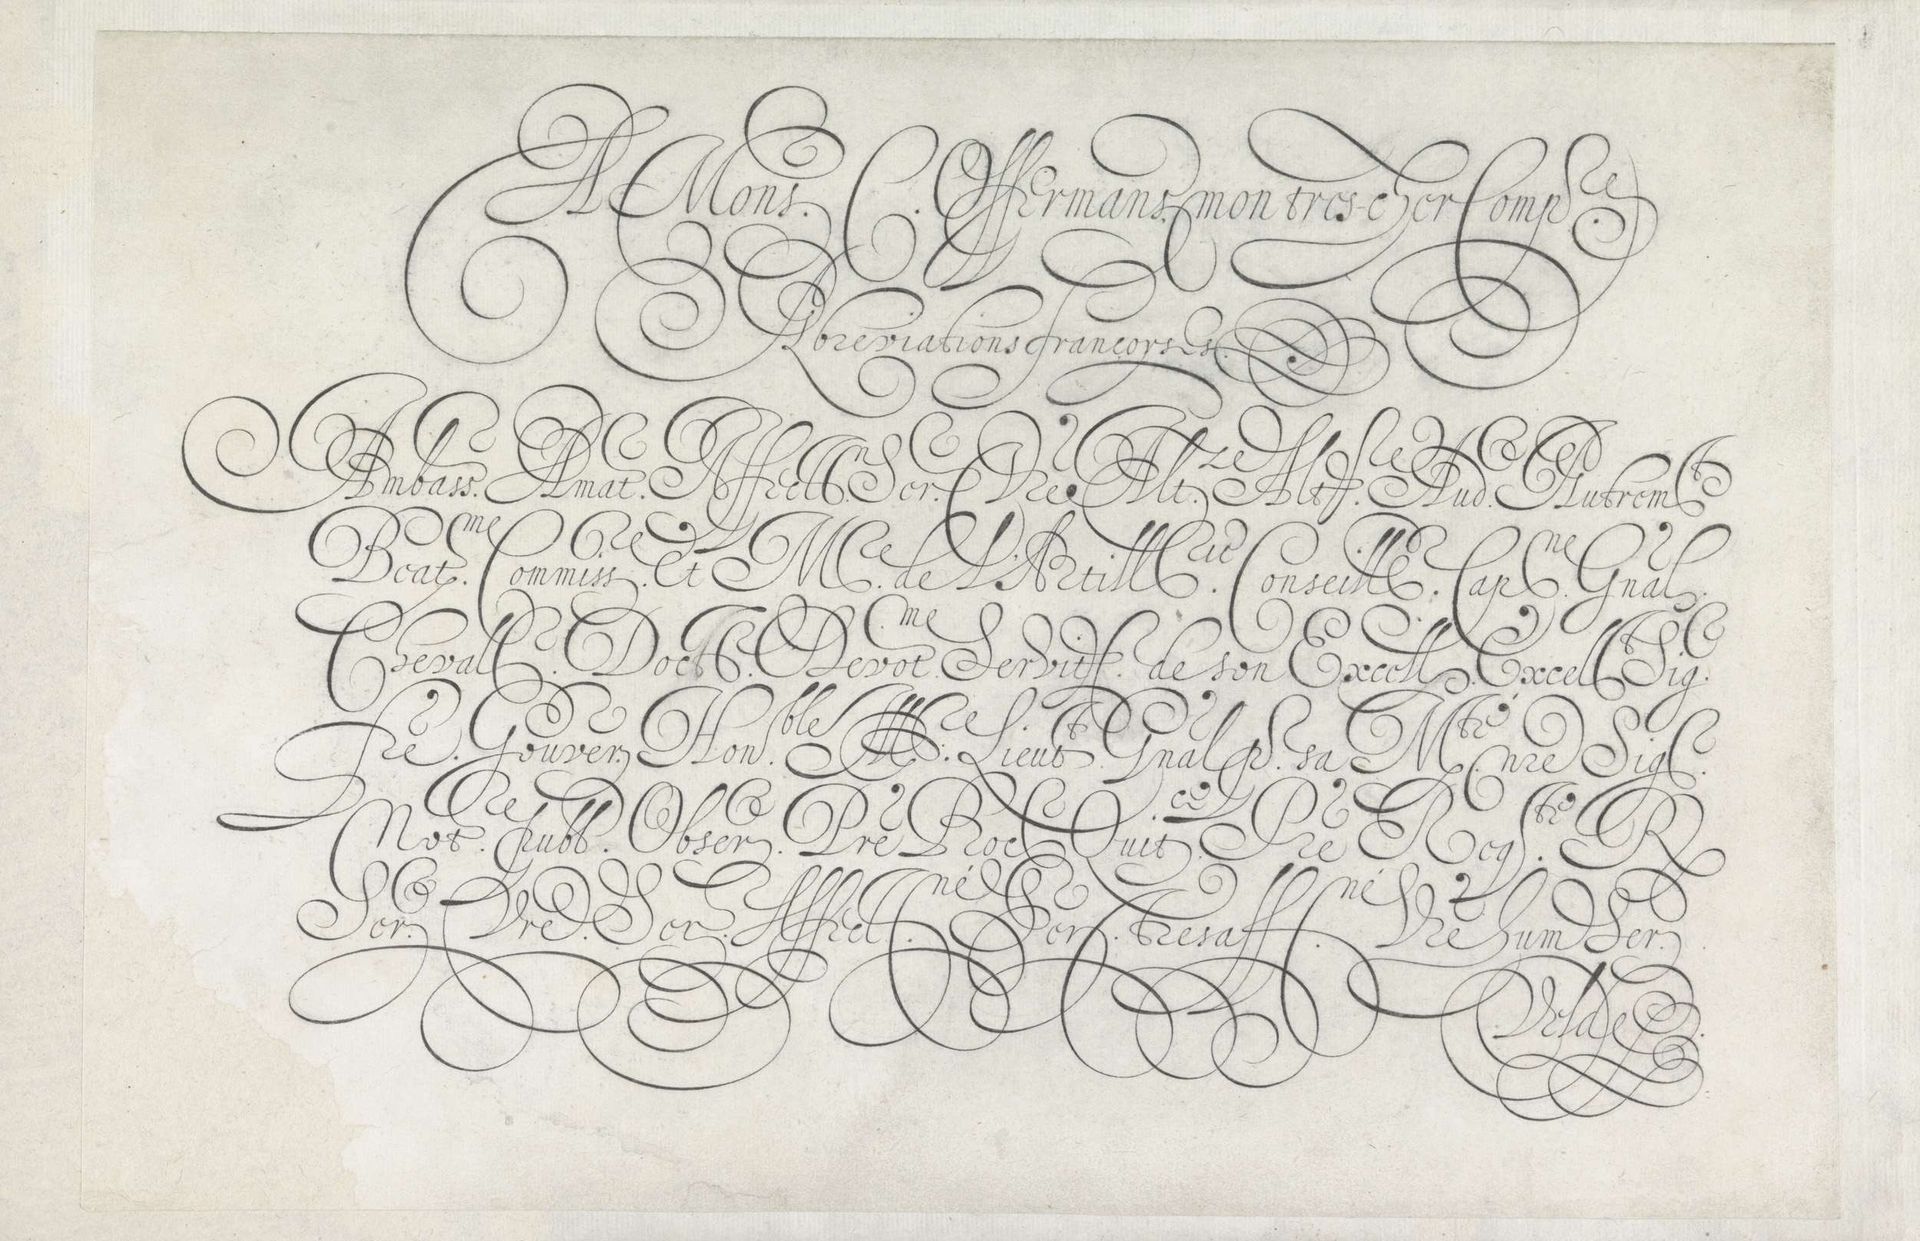 A Mons. C. Offermans mon tres-cher Compre
Abreviations françoises.
Ambass. Amat. Affect. Ser. Vre Alt. Aud. Autrem
Beat. Commiss. Et Mre. de L'Artill Conseill. Cap. Gnal.
Chevall. Doct. Devot. Servit. de son Excell. Excell Sig.
fre. Gouver. Honble Lieut. Gnal p. sa Mté nre Sig.
Not. publ. Obser. Pre Proc Quit. Pre Reg. R
Ser. Vre. Ser. Affect. né Ser. tresaff. né Vre hum Ser.
Velde.